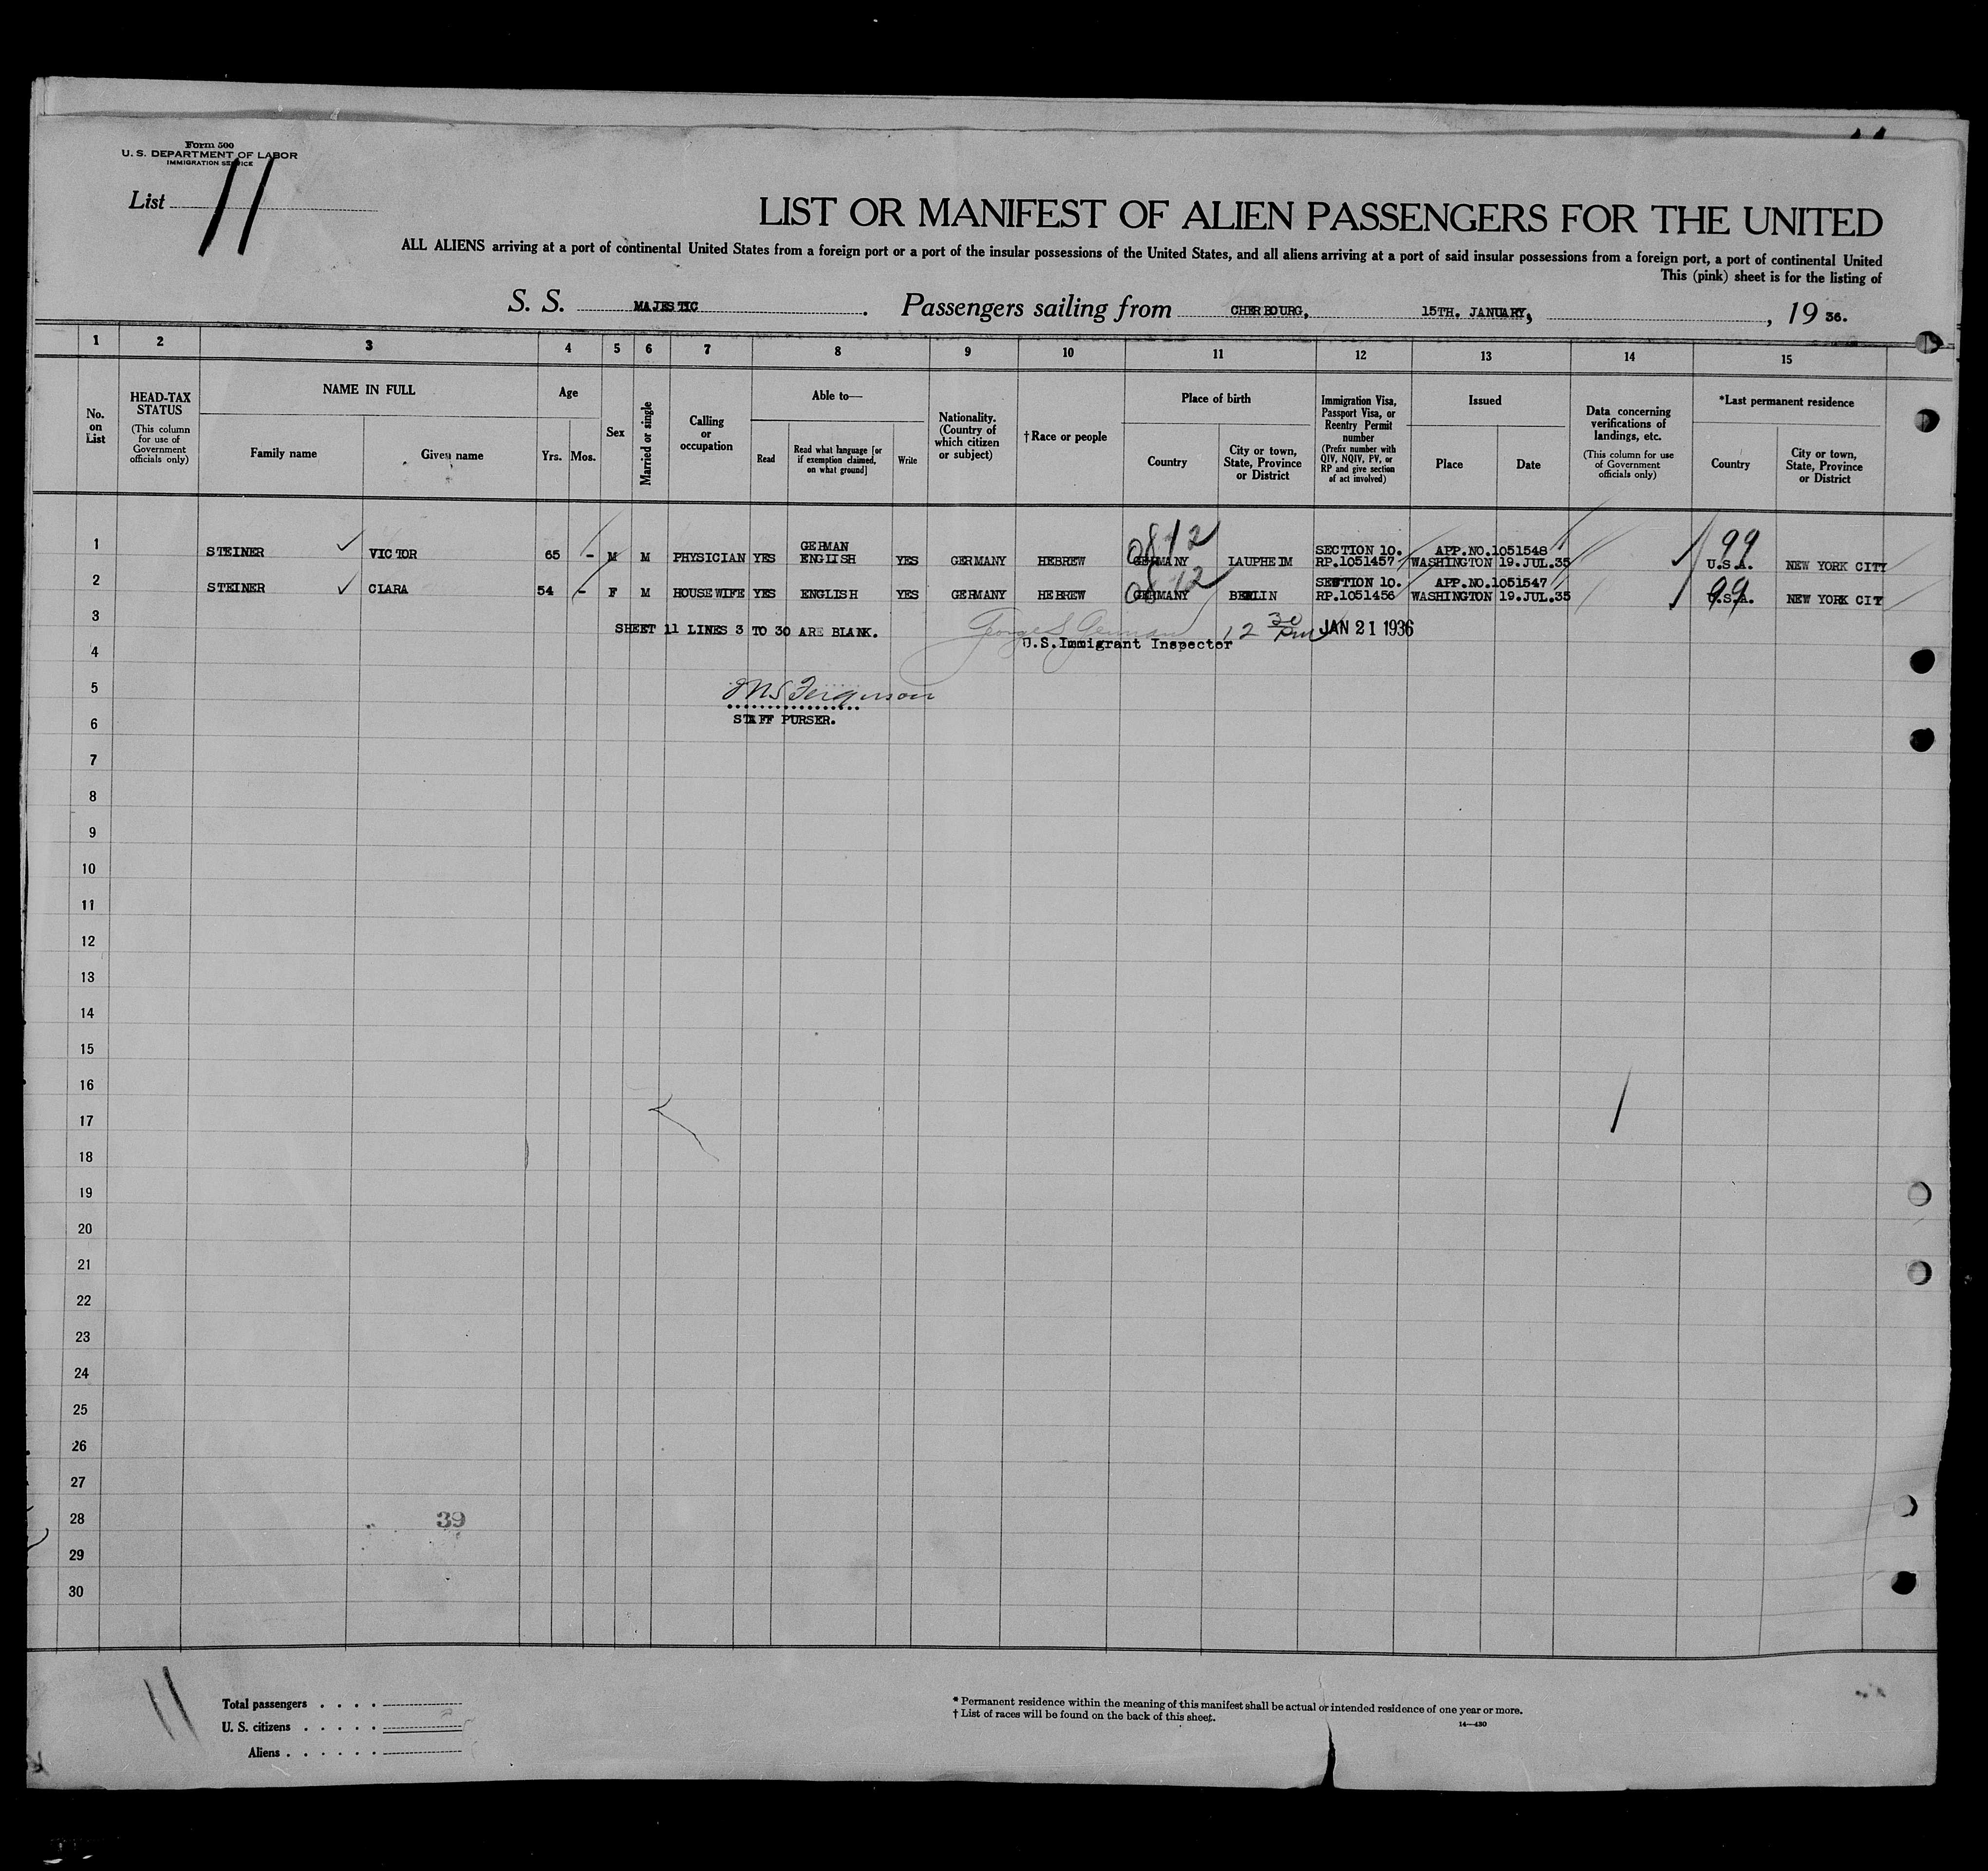 Form 500
U. S. DEPARTMENT OF LABOR
IMMIGRATION SERVICE
List 11
LIST OR MANIFEST OF ALIEN PASSENGERS FOR THE UNITED
ALL ALIENS arriving at a port of continental United States from a foreign port or a port of the insular possessions of the United States, and all aliens arriving at a port of said insular possessions from a foreign port, a port of continental United
This (pink) sheet is for the listing of
S. S. MAJESTIC. Passengers sailing from CHERBOURG, 15TH. JANUARY, , 19 36.
1 2 3 4 5 6 7 8 9 10 11 12 13 14 15
No. on List
HEAD-TAX STATUS
(This column for use of Government officials only)
NAME IN FULL
Family name
Given name
Age
Yrs.
Mos.
Sex
Married or single
Calling or occupation
Able to—
Read
Read what language [or if exemption claimed, on what ground]
Write
Nationality. (Country of which citizen or subject)
†Race or people
Place of birth
Country
City or town, State, Province or District
Immigration Visa, Passport Visa, or Reentry Permit number
(Prefix number with QIV, NQIV, PV, or RP and give section of act involved)
Issued
Place
Date
Data concerning verifications of landings, etc.
(This column for use of Government officials only)
*Last permanent residence
Country
City or town, State, Province or District
0812 99
GERMAN SECTION 10. APP.NO.1051548
1 STEINER VICTOR 65 - M M PHYSICIAN YES ENGLISH YES GERMANY HEBREW GERMANY LAUPHEIM RP.1051457 WASHINGTON 19.JUL.35 U.S.A. NEW YORK CITY
0812 99
SECTION 10. APP.NO.1051547
2 STEINER CLARA 54 - F M HOUSEWIFE YES ENGLISH YES GERMANY HEBREW GERMANY BERLIN RP.1051456 WASHINGTON 19.JUL.35 U.S.A. NEW YORK CIT
3 SHEET 11 LINES 3 TO 30 ARE BLANK. 12 30 Pm JAN 21 1936
U.S.Immigrant Inspector
4
5 Ferguson
6 STAFF PURSER.
7
8
9
10
11
12
13
14
15
16
17
18
19
20
21
22
23
24
25
26
27
28 39
29
30
11
Total passengers . . . .
U. S. citizens . . . . .
Aliens . . . . . .
* Permanent residence within the meaning of this manifest shall be actual or intended residence of one year or more.
† List of races will be found on the back of this sheet.
14—430